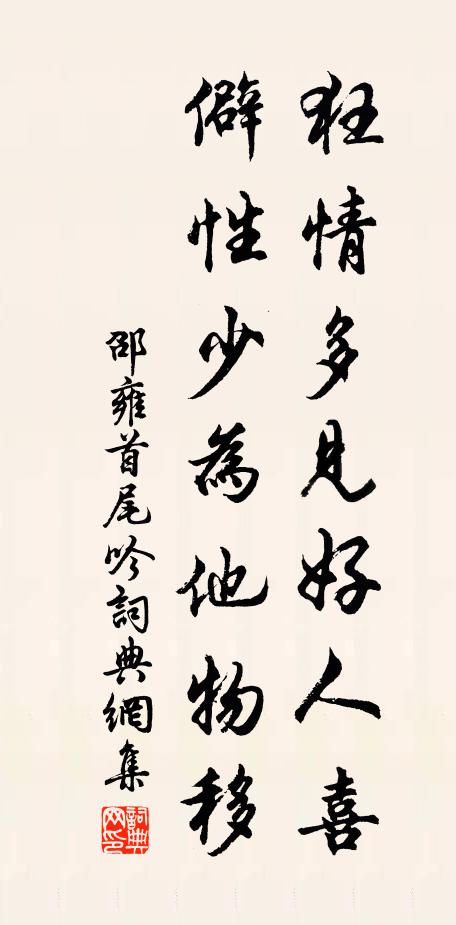 狂情多見好人喜
僻性少為他物移
邵雍首尾吟詞典網集
詞典
网印